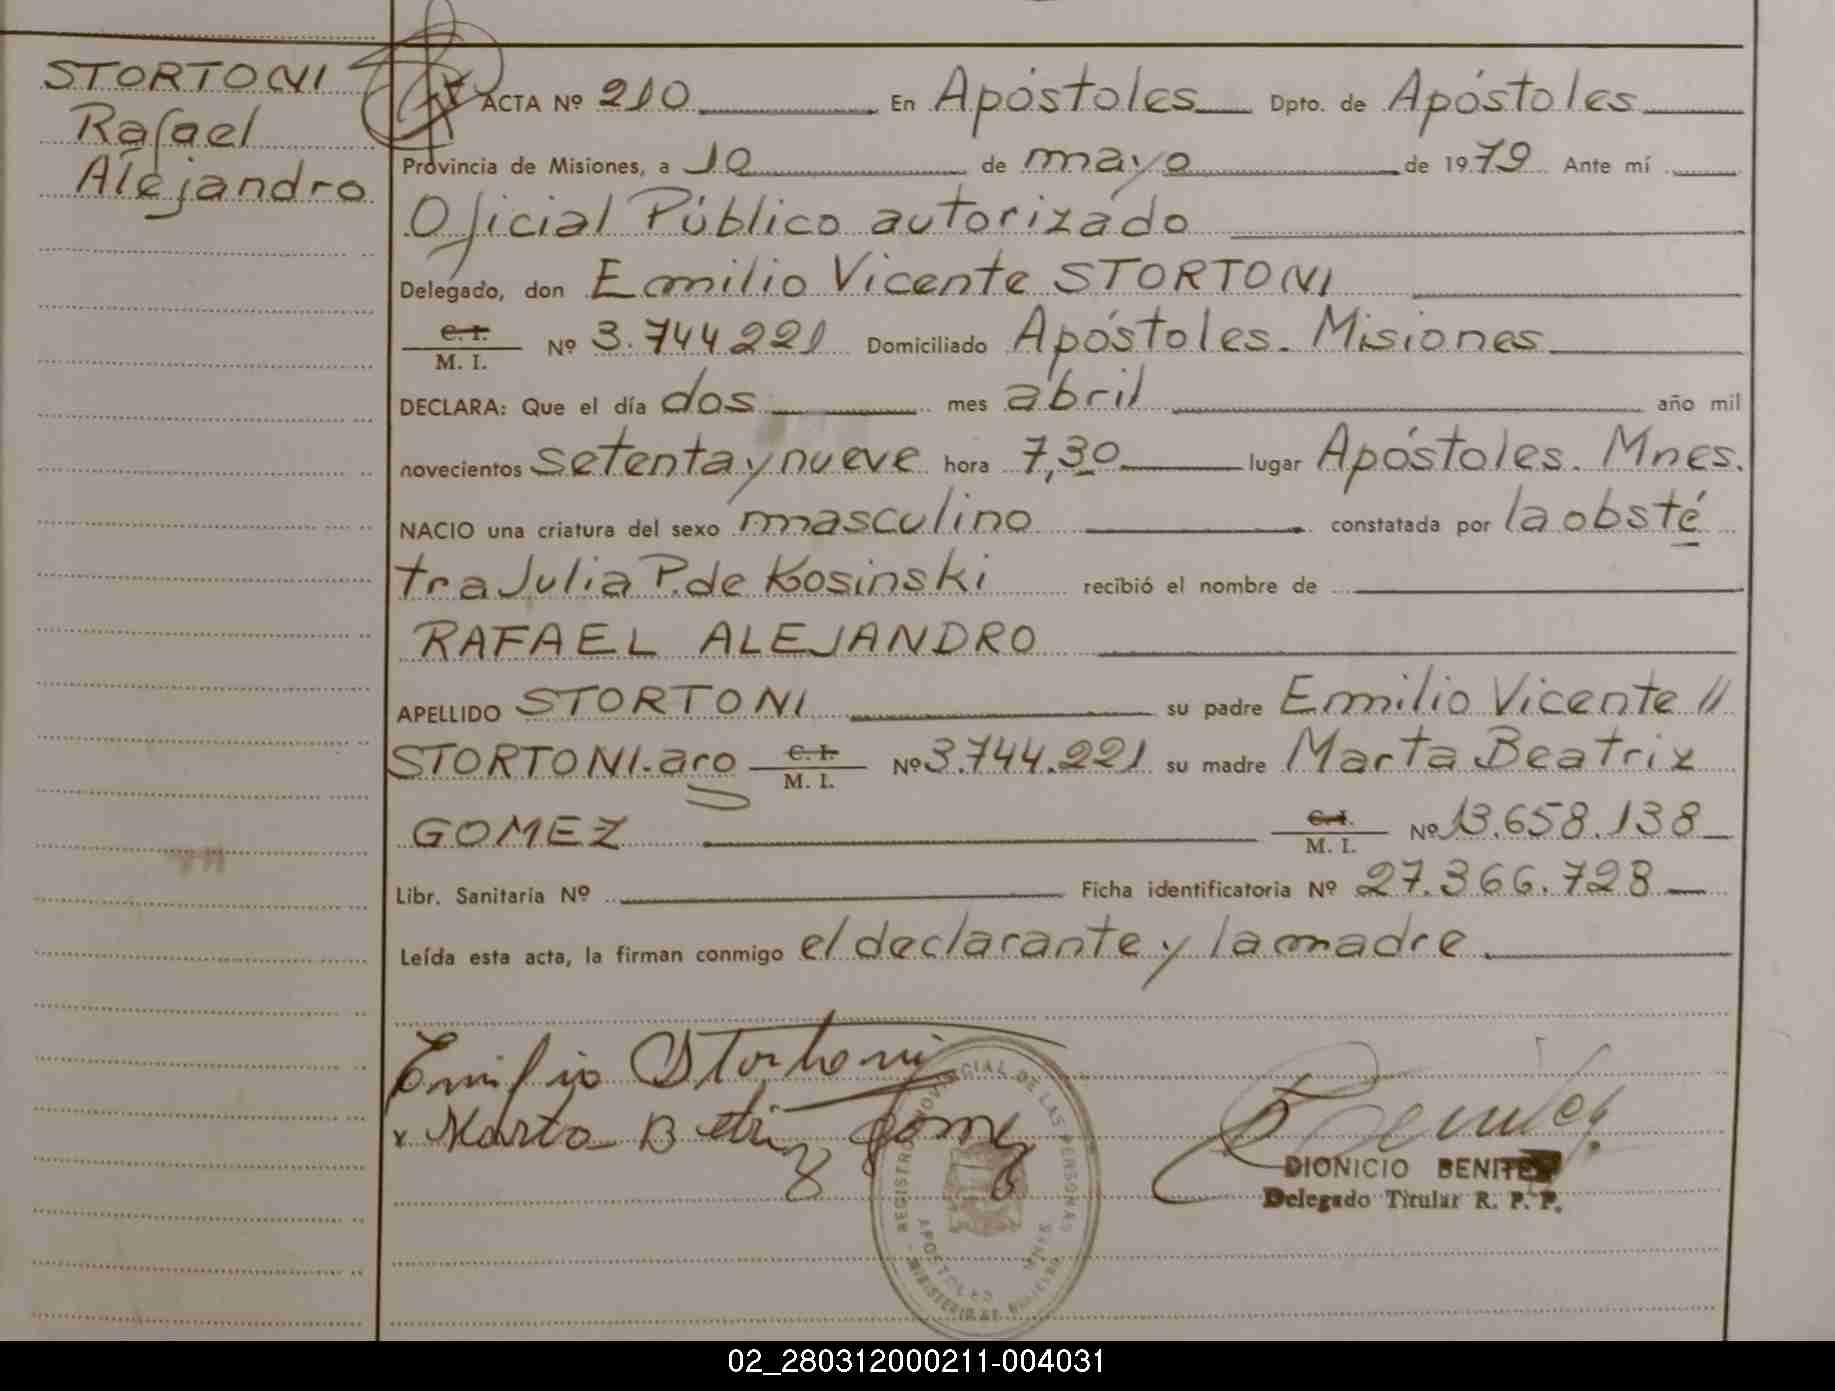 STORTONI
Rafael
Alejandro
ACTA Nº 210 En Apóstoles Dpto. de Apóstoles
Provincia de Misiones, a 10 de mayo de 1979 Ante mí
Oficial Público autorizado
Delegado, don Emilio Vicente STORTONI
C. I.
M. I. Nº 3.744221 Domiciliado Apóstoles. Misiones
DECLARA: Que el día dos mes abril año mil
novecientos setenta y nueve hora 7,30 lugar Apóstoles. Mnes.
NACIO una criatura del sexo masculino constatada por la obsté
tra Julia P. de Kosinski recibió el nombre de
RAFAEL ALEJANDRO
APELLIDO STORTONI su padre Emilio Vicente //
STORTONI-aro C. I. M. I. Nº 3.744.221 su madre Marta Beatriz
GOMEZ C. I. M. I. Nº 13.658.138
Libr. Sanitaria Nº Ficha identificatoria Nº 27.366.728
Leída esta acta, la firman conmigo el declarante y la madre
Emilio Stortoni
x Marta Betriz Gomez
REGISTRO PROVINCIAL DE LAS PERSONAS
APOSTOLES MNES
MINISTERIO DE GOBIERNO
DIONICIO BENITEZ
Delegado Titular R. P. P.
02_280312000211-004031